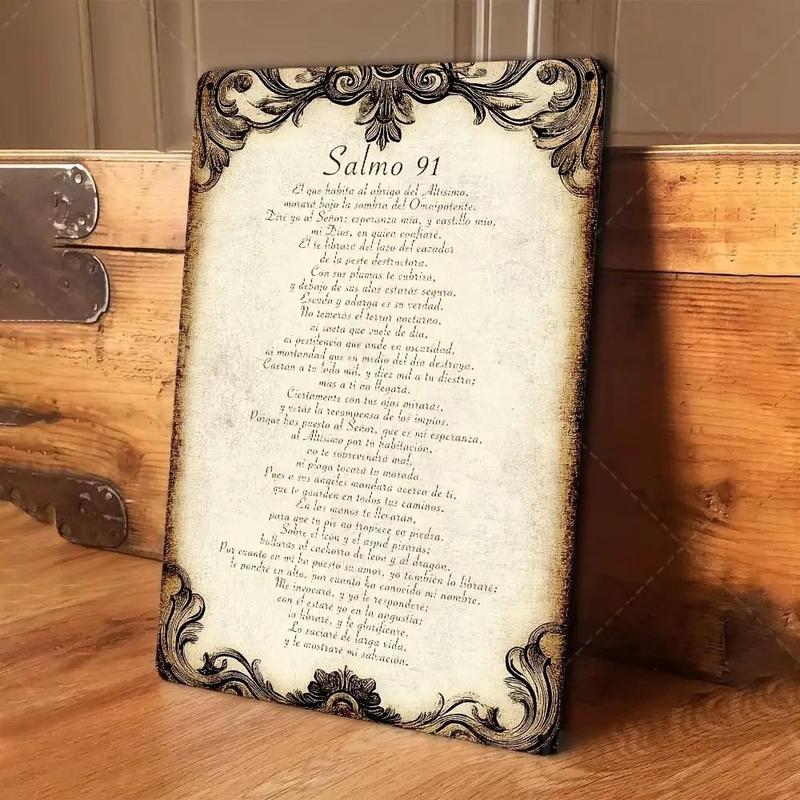 Salmo 91
El que habita al abrigo del Altísimo,
morará bajo la sombra del Omnipotente.
Diré yo al Señor: esperanza mía, y castillo mío,
mi Dios, en quien confiaré.
El te librará del lazo del cazador
de la peste destructora.
Con sus plumas te cubrirá,
y debajo de sus alas estarás seguro.
Escudo y adarga es su verdad.
No temerás el terror nocturno,
ni saeta que vuele de día,
ni pestilencia que ande en oscuridad,
ni mortandad que en medio del día destruya.
Caerán a tu lado mil, y diez mil a tu diestra;
mas a ti no llegará.
Ciertamente con tus ojos mirarás,
y verás la recompensa de los impíos.
Porque has puesto al Señor, que es mi esperanza,
al Altísimo por tu habitación,
no te sobrevendrá mal,
ni plaga tocará tu morada
Pues a sus ángeles mandará acerca de ti,
que te guarden en todos tus caminos.
En las manos te llevarán,
para que tu pie no tropiece en piedra.
Sobre el león y el aspid pisarás;
hollarás al cachorro de león y al dragón.
Por cuanto en mi ha puesto su amor, yo también lo libraré;
le pondré en alto, por cuanto ha conocido mi nombre.
Me invocará, y yo le responderé;
con él estaré yo en la angustia;
lo libraré, y le glorificaré.
Lo saciaré de larga vida,
y le mostraré mi salvación.